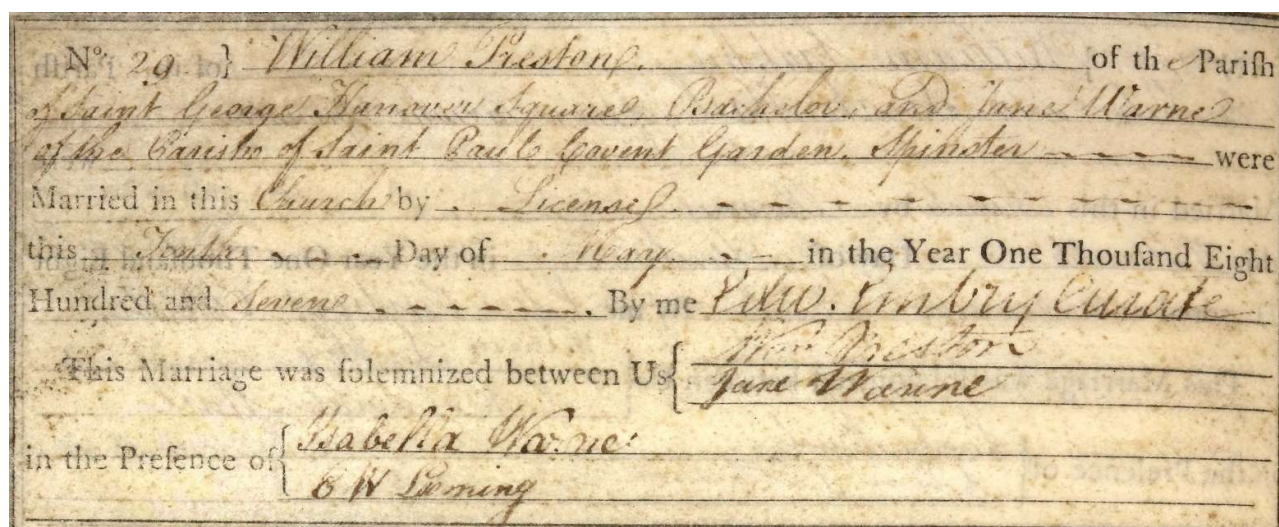 No. 29 } William Preston. of the Pariſh
of Saint George Hanover Square, Bachelor, and Jane Warne
of the Parish of Saint Paul Covent Garden, Spinster were
Married in this Church by License
this Tenth Day of May in the Year One Thouſand Eight
Hundred and Seven By me Edw. Embry Curate
This Marriage was ſolemnized between Us { Wm Preston
Jane Warne
in the Preſence of { Isabella Warne
E W Leming